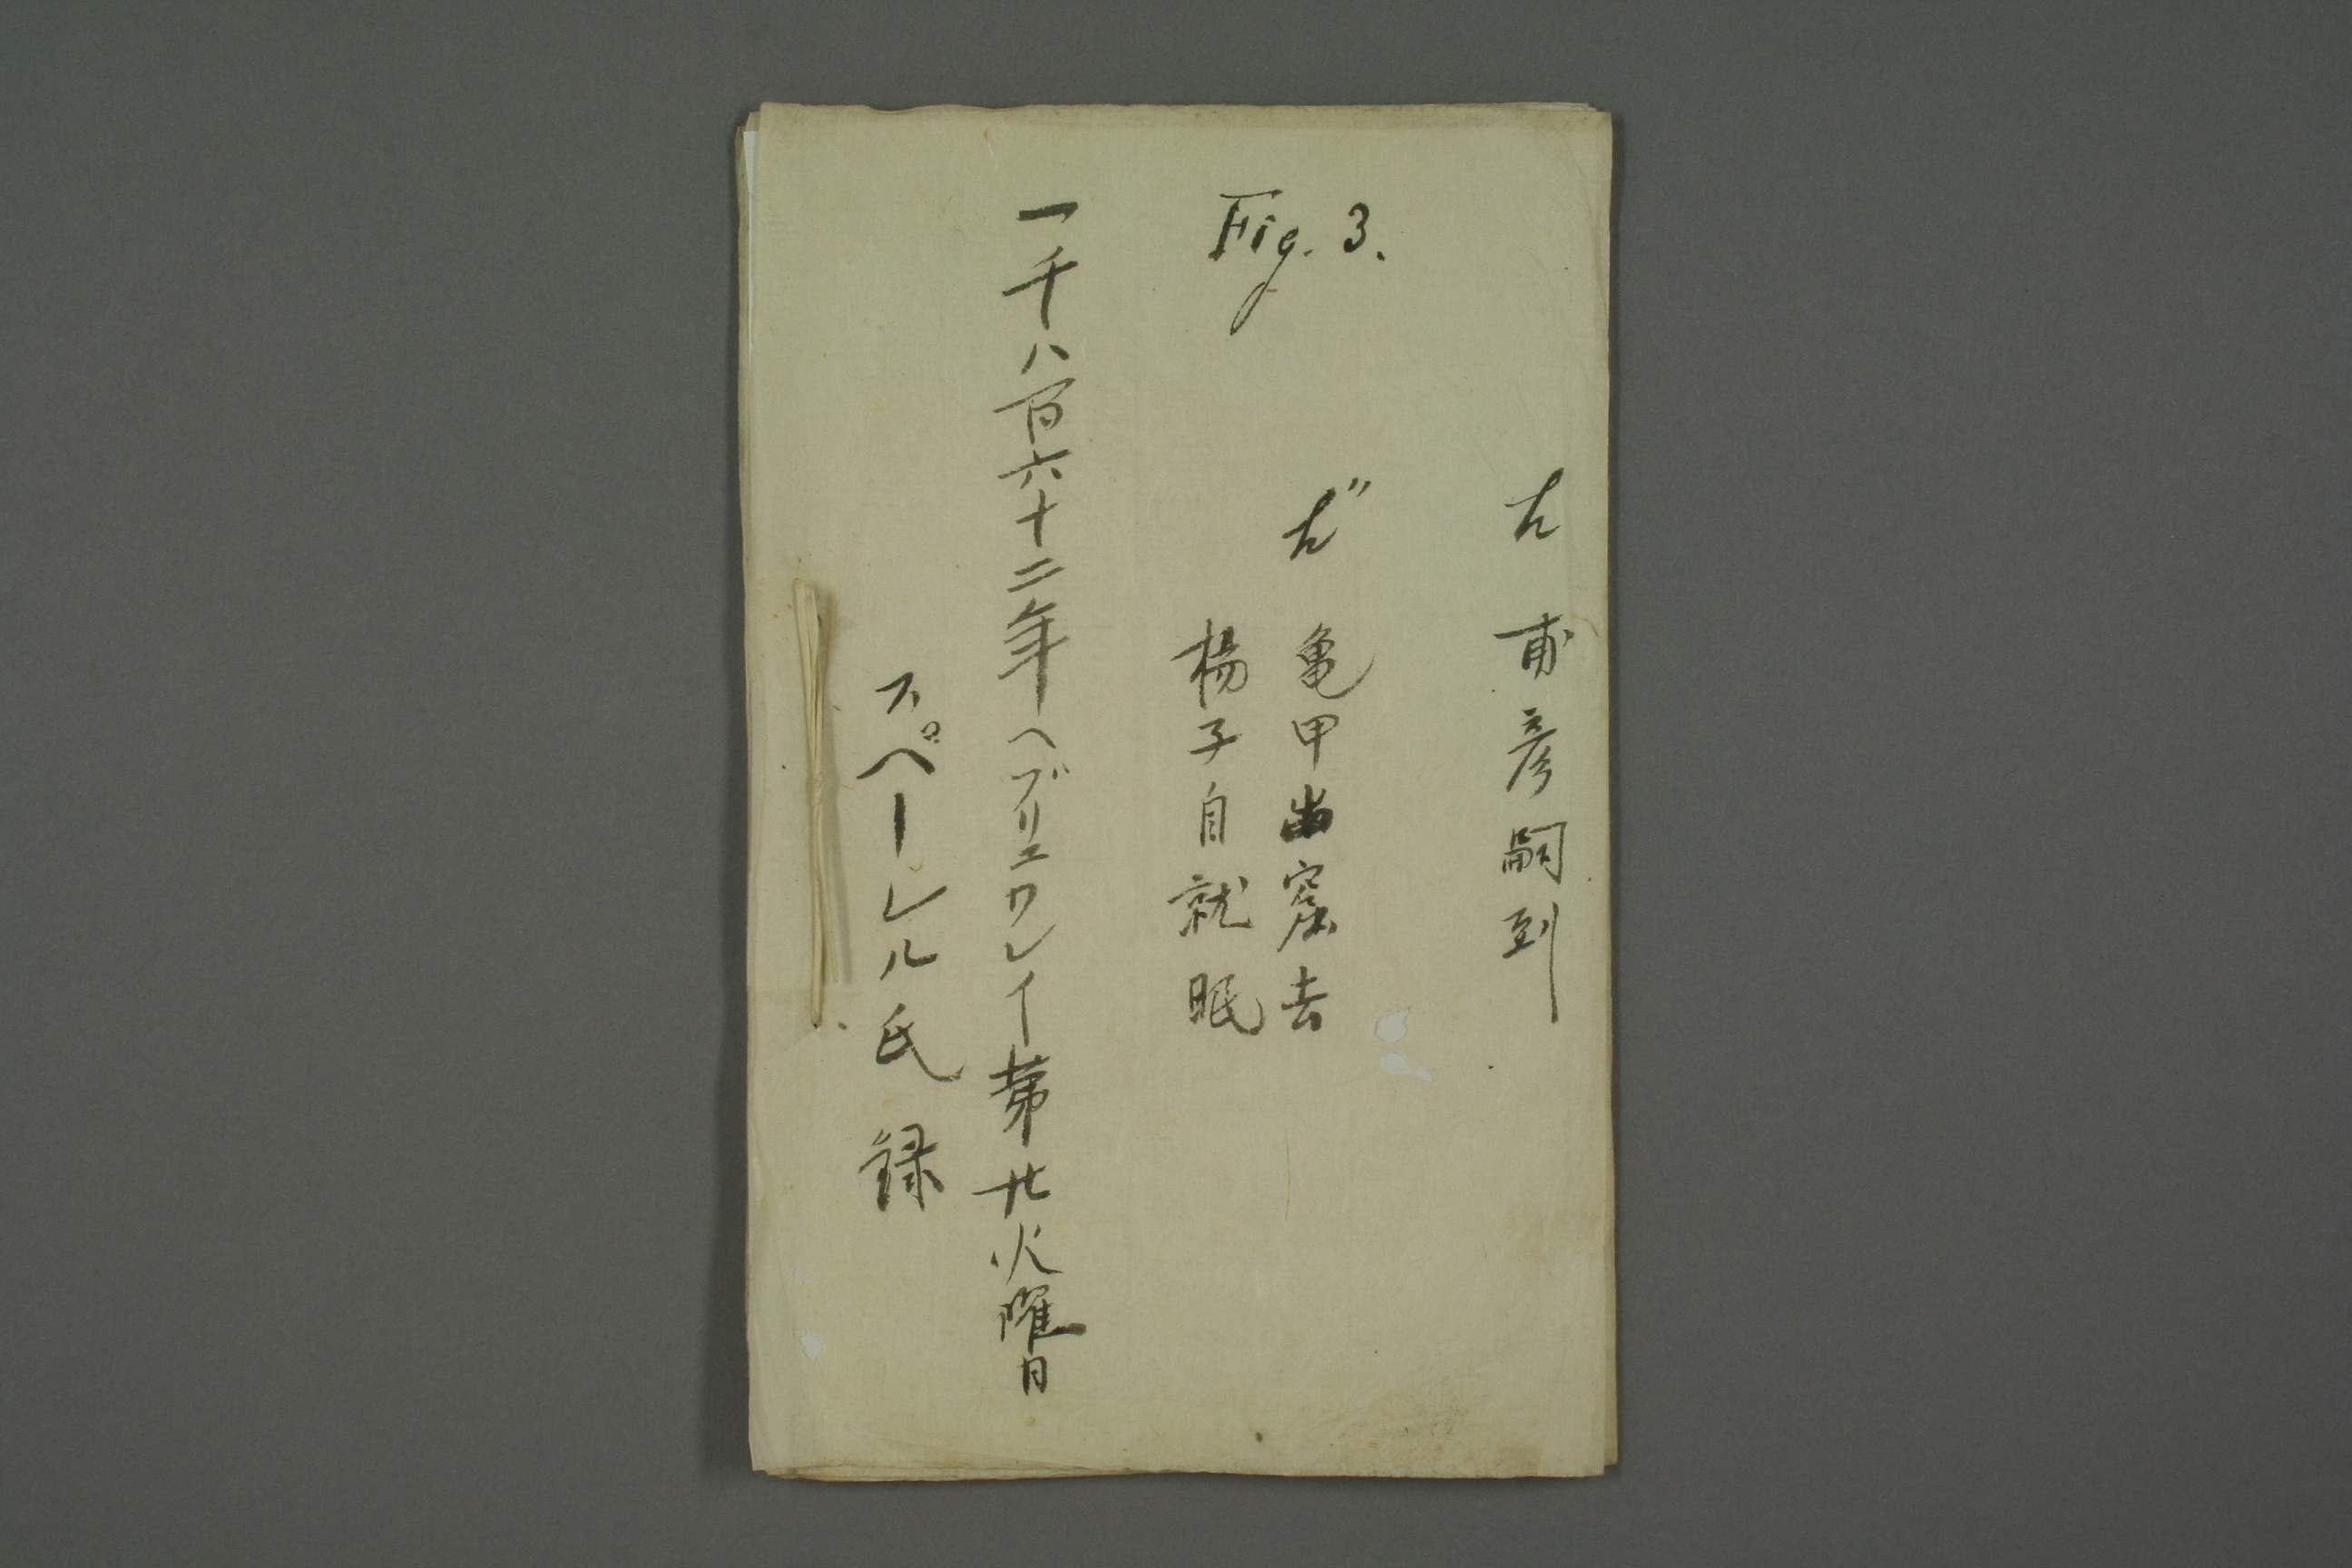 左 甫彦嗣到
Fig. 3.
左〃 亀甲出窟去
楊子自就眠
一千八百六十二年ヘブリユワレイ第廿火曜日
スペーレル氏 録